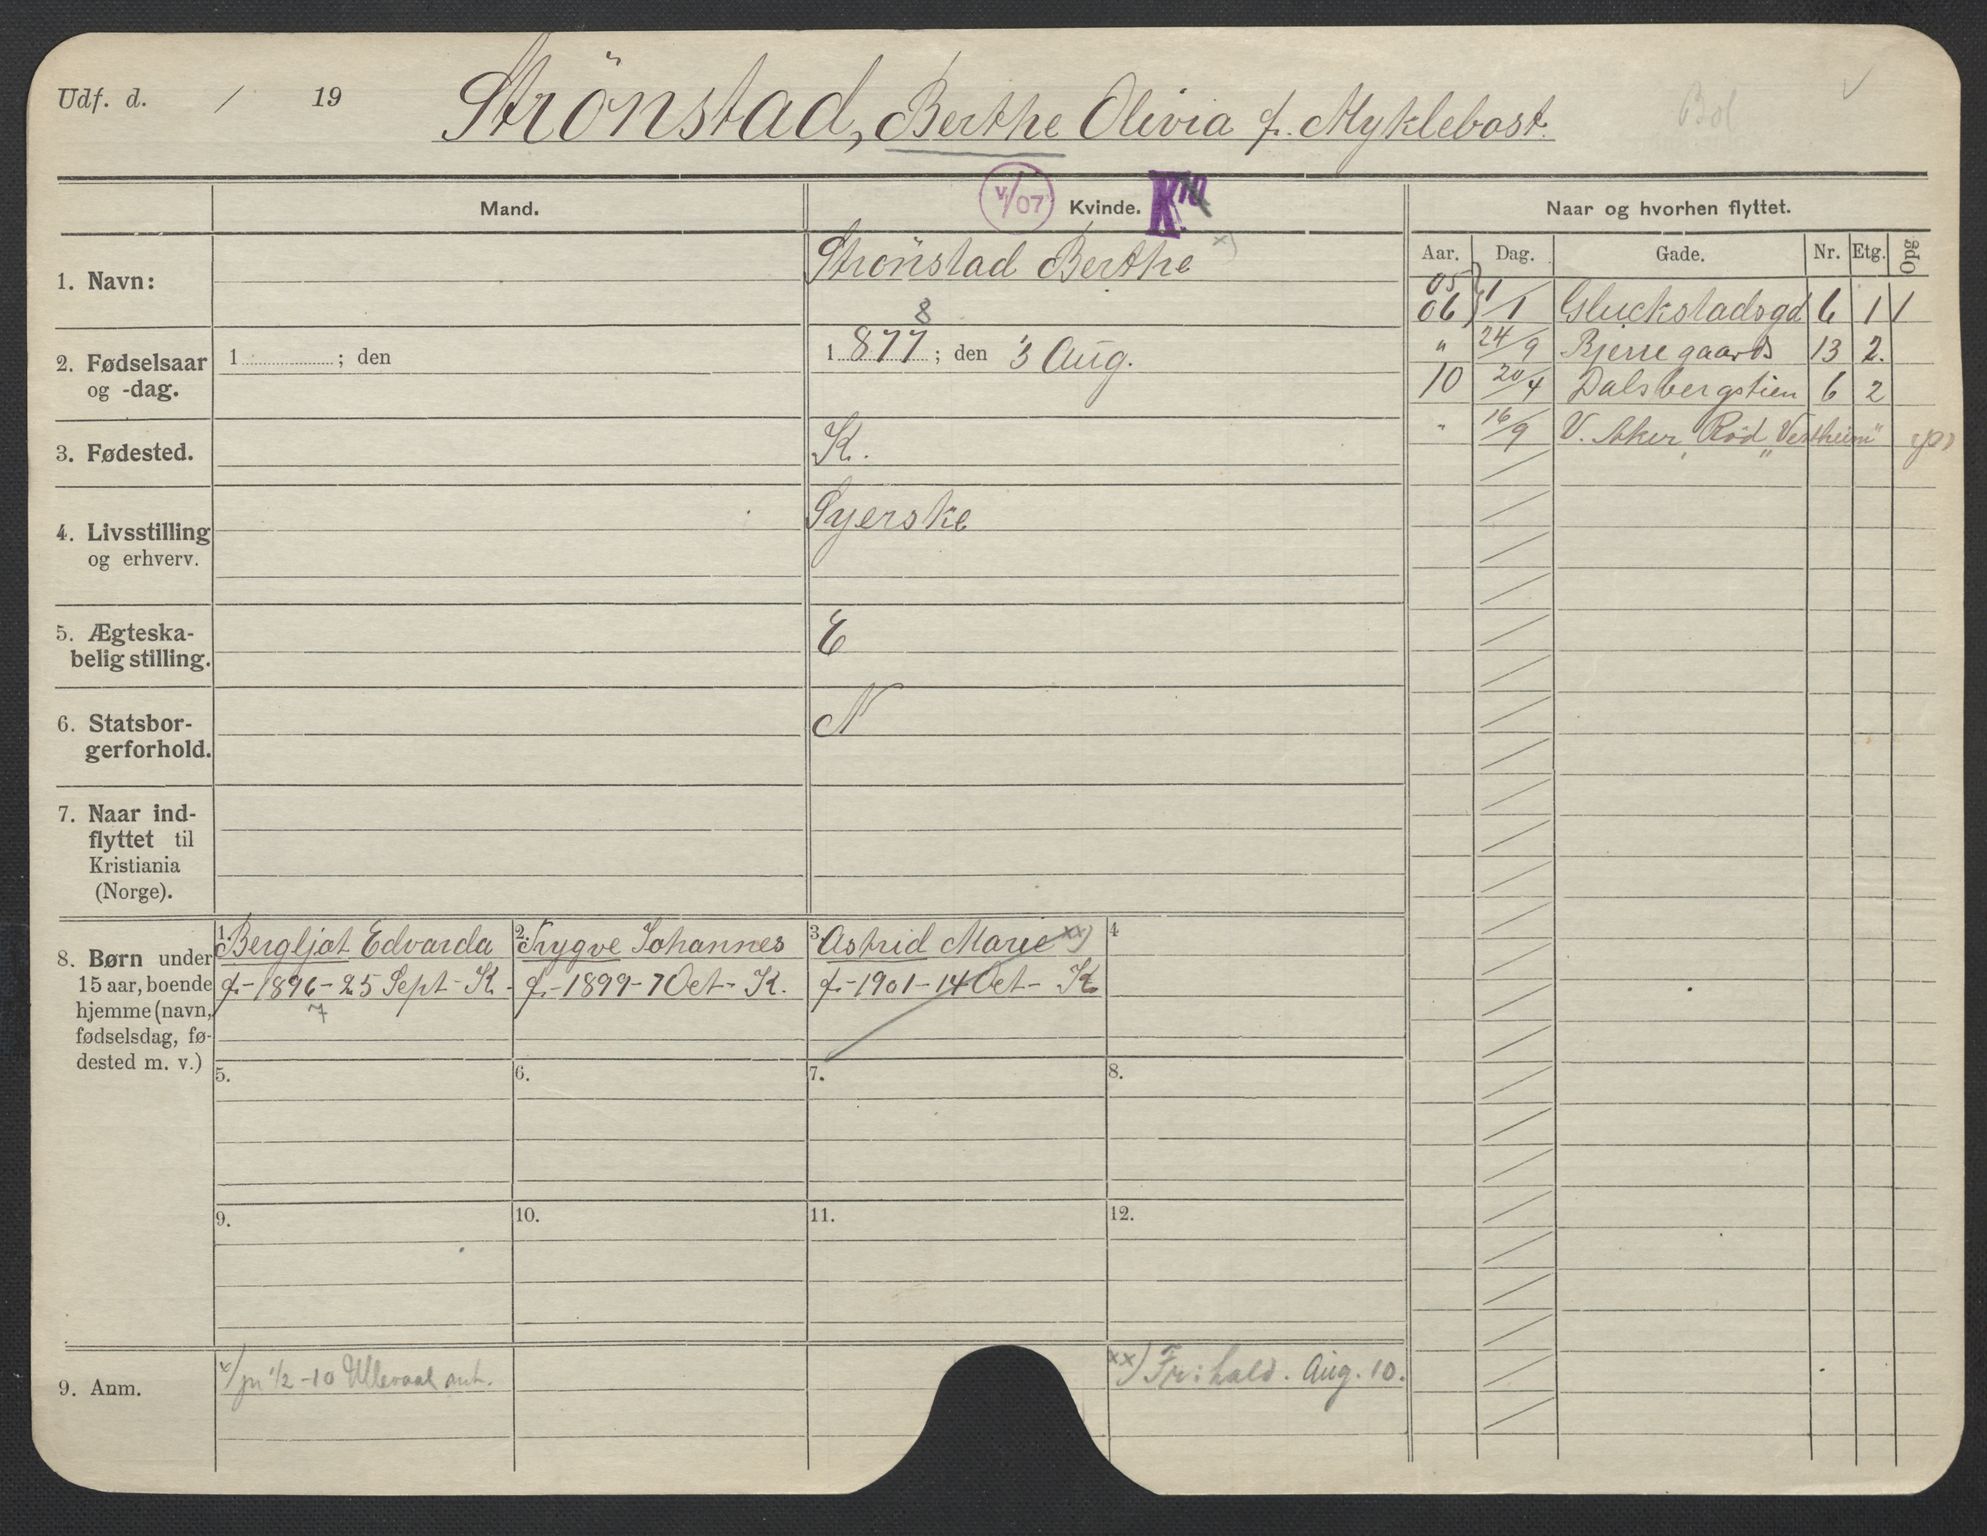 Udf. d. / 19
Strönstad, Berthe Olivia f. Myklebost.
Bol
Mand.
V/07
Kvinde.
K.
Naar og hvorhen flyttet.
Aar. Dag. Gade. Nr. Etg. Opg
1. Navn:
Strönstad Berthe x)
2. Fødselsaar
og -dag.
1 ; den
8
1 877 ; den 3 Aug.
3. Fødested.
K.
4. Livsstilling
og erhverv.
Syerske
5. Ægteska-
belig stilling.
E
6. Statsbor-
gerforhold.
N
7. Naar ind-
flyttet til
Kristiania
(Norge).
05
06 1/1 Gluckstadsgd 6 1 1
" 24/9 Bjerregaards 13 2.
10 20/4 Dalsbergstien 6 2
" 16/9 V. Aker, Röd „Vestheim"
8. Børn under
15 aar, boende
hjemme (navn,
fødselsdag, fø-
dested m. v.)
1. Bergljot Edvarda
f.-1896-25 Sept-K.
7
2. Trygve Johannes
f.-1899-7 Oct-K.
3. Astrid Marie xx)
f.-1901-14 Oct-K
4
5.
6.
7.
8.
9.
10.
11.
12.
9. Anm.
x/ 1/2-10 Ullevaal
xx) Fr:hald. Aug. 10.